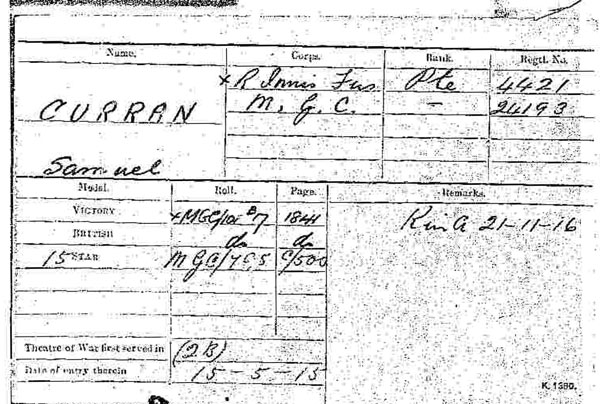 Name. Corps. Rank. Regtl. No.
x R Innis Fus Pte 4421
CURRAN M. G. C. - 24193
Samuel
Medal. Roll. Page. Remarks.
VICTORY x MGC/101 B17 1841 Kin A 21-11-16
BRITISH do do
15 STAR MGC/7C5 C/500
Theatre of War first served in (2B)
Date of entry therein 15-5-15
K. 1380.